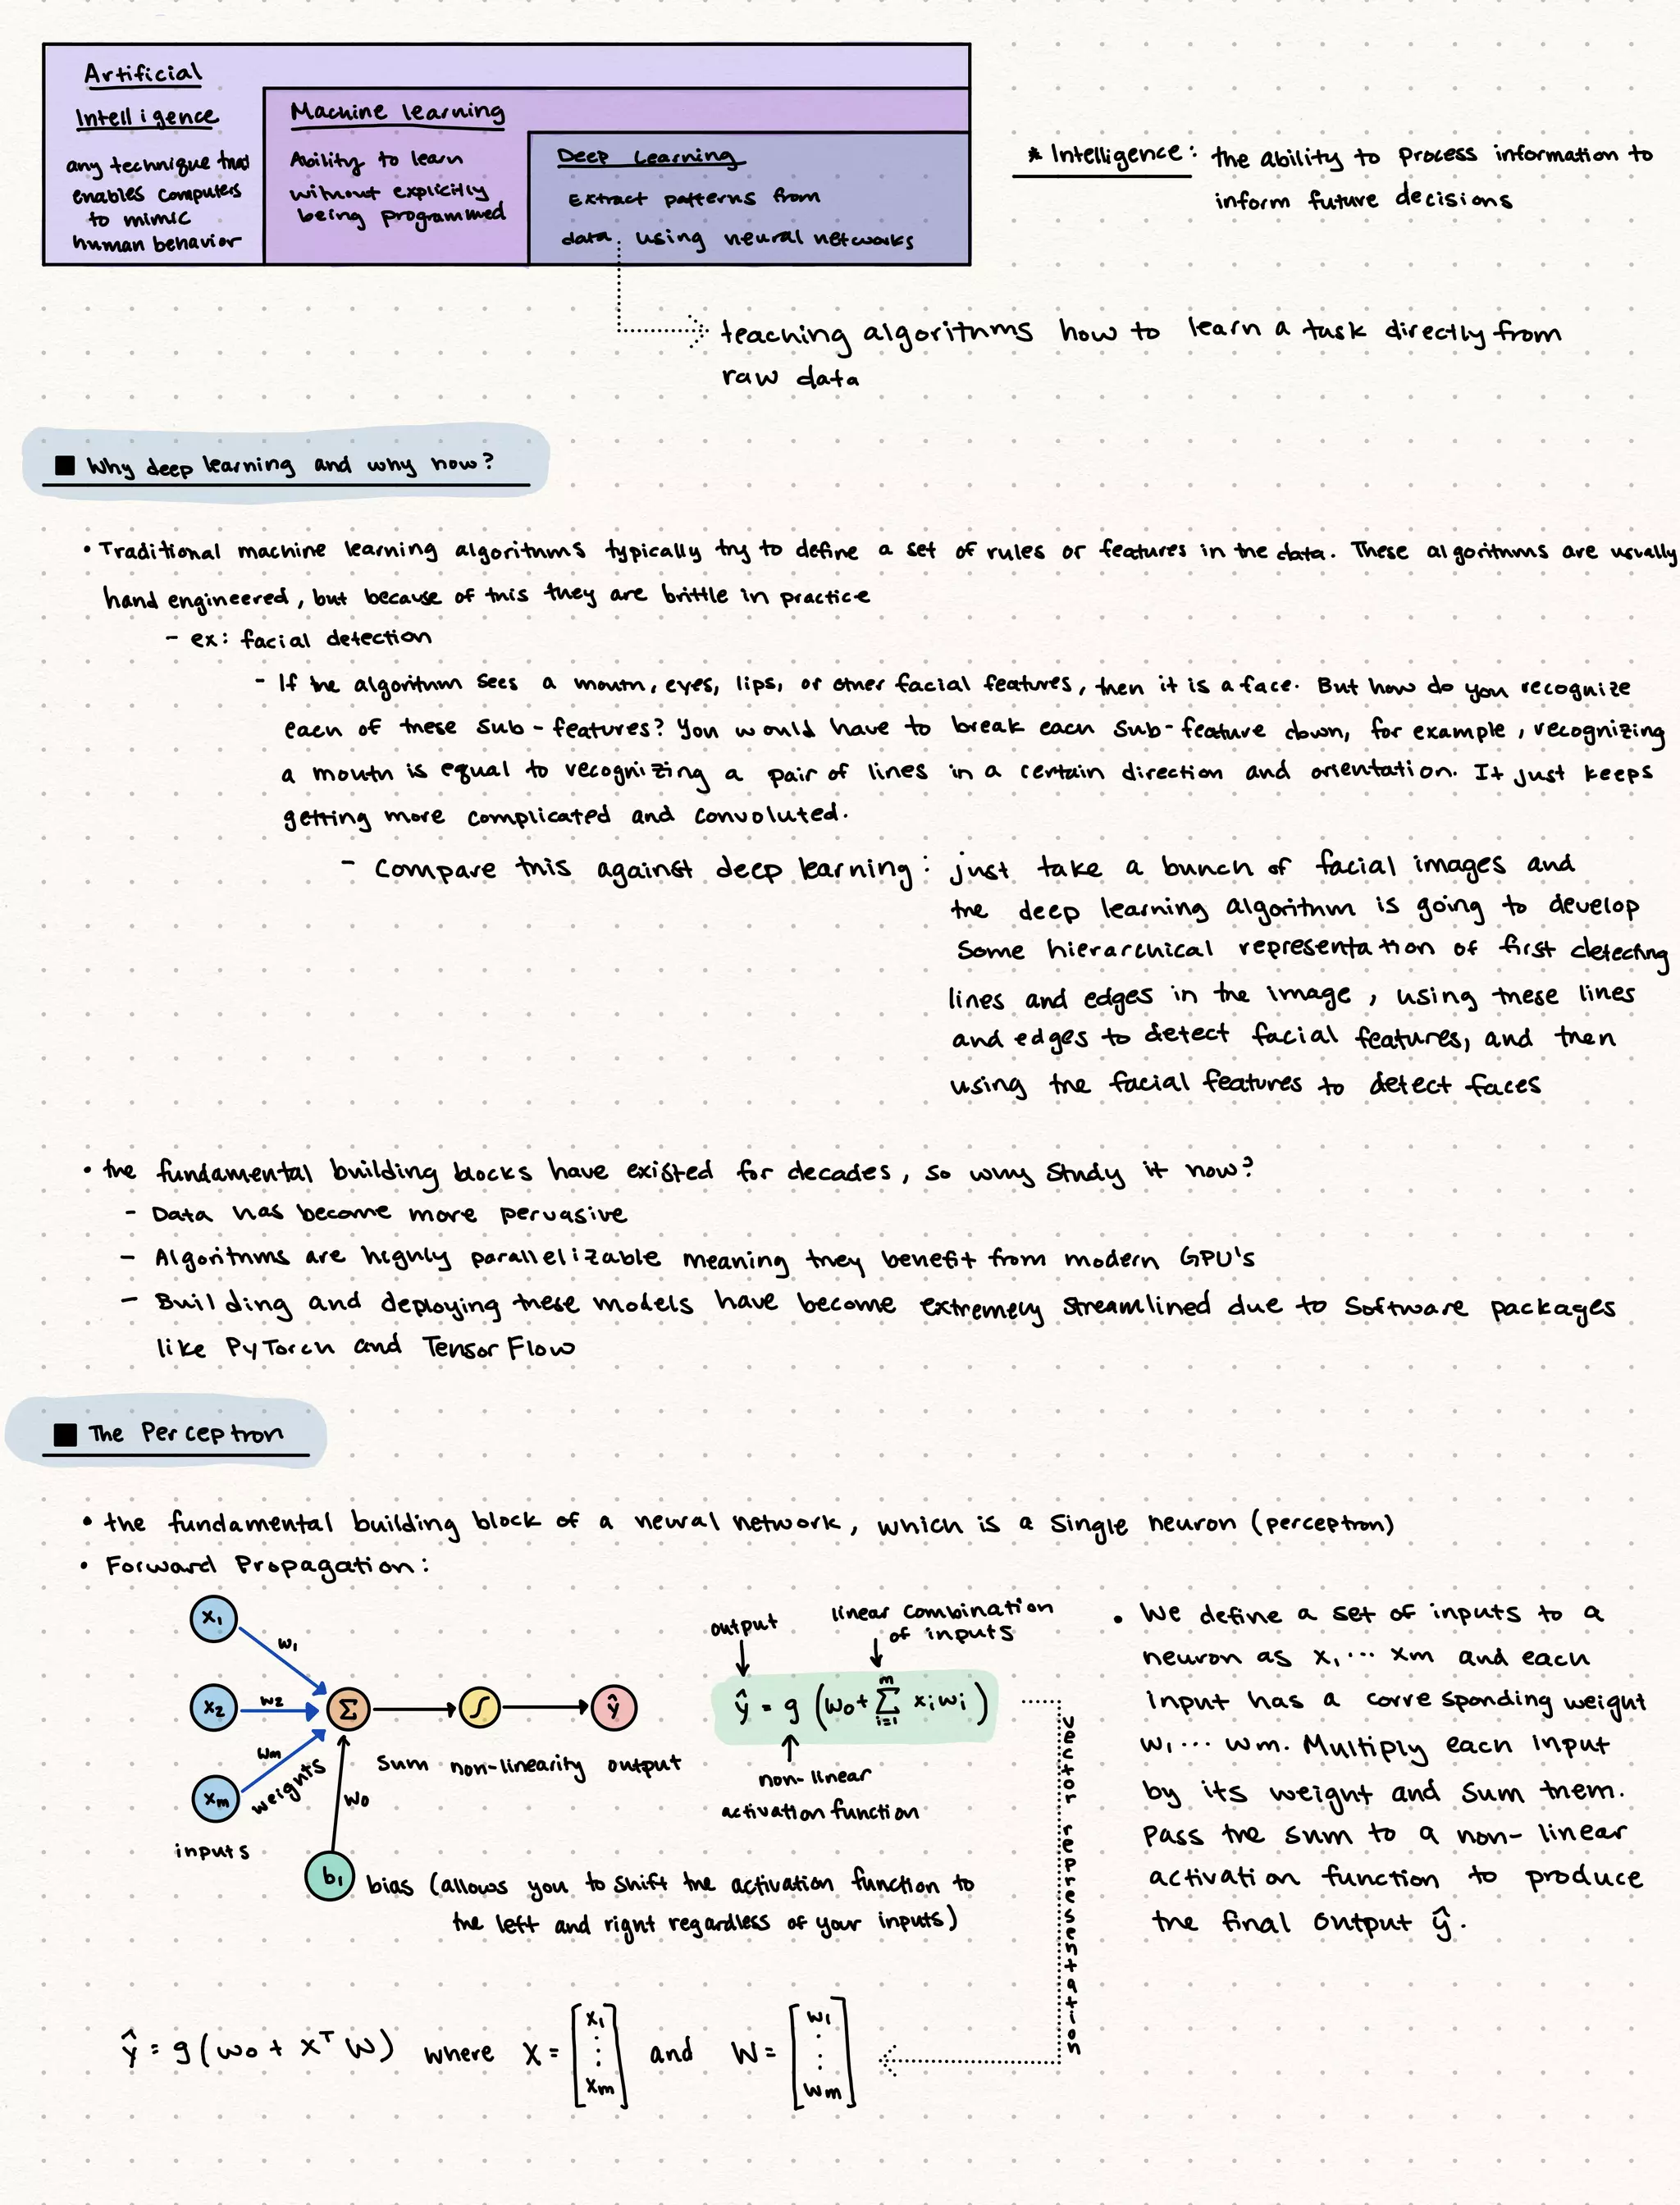 Artificial
Intelligence
any technique that
enables computers
to mimic
human behavior
Machine learning
Ability to learn
without explicitly
being programmed
Deep Learning
Extract patterns from
data using neural networks
* Intelligence: the ability to process information to
inform future decisions
teaching algorithms how to learn a task directly from
raw data
■ Why deep learning and why now?
• Traditional machine learning algorithms typically try to define a set of rules or features in the data. These algorithms are usually
hand engineered, but because of this they are brittle in practice
- ex: facial detection
- If the algorithm sees a mouth, eyes, lips, or other facial features, then it is a face. But how do you recognize
each of these sub-features? You would have to break each sub-feature down, for example, recognizing
a mouth is equal to recognizing a pair of lines in a certain direction and orientation. It just keeps
getting more complicated and convoluted.
- Compare this against deep learning: just take a bunch of facial images and
the deep learning algorithm is going to develop
some hierarchical representation of first detecting
lines and edges in the image, using these lines
and edges to detect facial features, and then
using the facial features to detect faces
• the fundamental building blocks have existed for decades, so why study it now?
- Data has become more pervasive
- Algorithms are highly parallelizable meaning they benefit from modern GPU's
- Building and deploying these models have become extremely streamlined due to software packages
like PyTorch and TensorFlow
■ The Perceptron
• the fundamental building block of a neural network, which is a single neuron (perceptron)
• Forward Propagation:
x₁
w₁
x₂
w₂
xₘ
wₘ
weights
inputs
Σ
∫
ŷ
sum non-linearity output
w₀
b₁ bias (allows you to shift the activation function to
the left and right regardless of your inputs)
output
linear combination
of inputs
ŷ = g (w₀ + Σᵢ₌₁ᵐ xᵢwᵢ)
non-linear
activation function
vector representation
• We define a set of inputs to a
neuron as x₁ ... xₘ and each
input has a corresponding weight
w₁ ... wₘ. Multiply each input
by its weight and sum them.
Pass the sum to a non-linear
activation function to produce
the final output ŷ.
ŷ = g(w₀ + Xᵀ W) where X = [x₁ ⋮ xₘ] and W = [w₁ ⋮ wₘ]